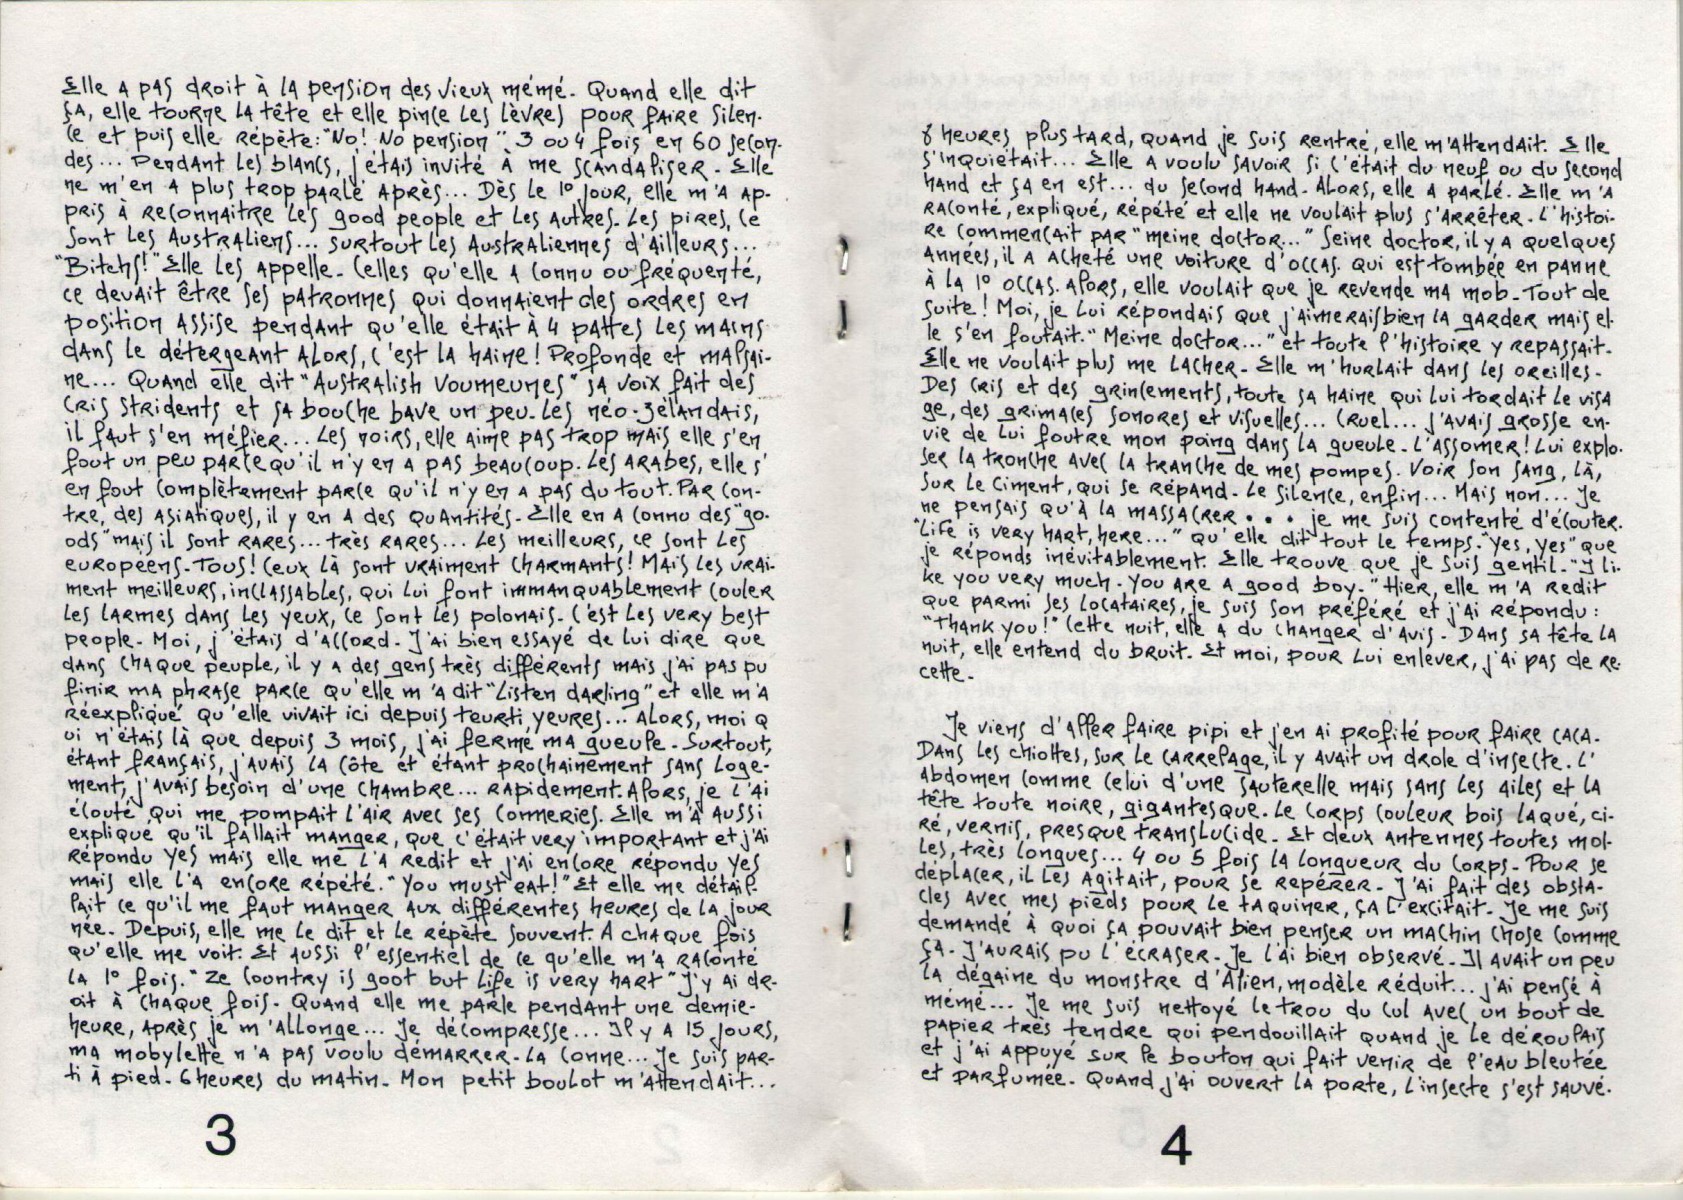 Elle a pas droit à la pension des vieux mémé. Quand elle dit
ça, elle tourne la tête et elle pince les lèvres pour faire silen-
ce et puis elle répète: "No! No pension". 3 ou 4 fois en 60 secon-
des... Pendant les blancs, j'étais invité à me scandaliser. Elle
ne m'en a plus trop parlé après... Dès le 1° jour, elle m'a ap-
pris à reconnaitre les good people et les autres. Les pires, ce
sont les Australiens... surtout les Australiennes d'ailleurs...
"Bitchs!" Elle les appelle. Celles qu'elle a connu ou fréquenté,
ce devait être ses patronnes qui donnaient des ordres en
position assise pendant qu'elle était à 4 pattes les mains
dans le détergeant alors, c'est la haine! Profonde et malsai-
ne... Quand elle dit "Australish voumeunes" sa voix fait des
cris stridents et sa bouche bave un peu. Les néo-zélandais,
il faut s'en méfier... Les noirs, elle aime pas trop mais elle s'en
fout un peu parce qu'il n'y en a pas beaucoup. Les arabes, elle s'
en fout complètement parce qu'il n'y en a pas du tout. Par con-
tre, des asiatiques, il y en a des quantités. Elle en a connu des "go-
ods" mais il sont rares... très rares... Les meilleurs, ce sont les
européens. Tous! Ceux là sont vraiment charmants! Mais les vrai-
ment meilleurs, inclassables, qui lui font immanquablement couler
les larmes dans les yeux, ce sont les polonais. C'est les very best
people. Moi, j'étais d'accord. J'ai bien essayé de lui dire que
dans chaque peuple, il y a des gens très différents mais j'ai pas pu
finir ma phrase parce qu'elle m'a dit "Listen darling" et elle m'a
réexpliqué qu'elle vivait ici depuis teurti yeures... Alors, moi q
ui n'étais là que depuis 3 mois, j'ai fermé ma gueule. Surtout,
étant français, j'avais la côte et étant prochainement sans loge-
ment, j'avais besoin d'une chambre... rapidement. Alors, je l'ai
écouté qui me pompait l'air avec ses conneries. Elle m'a aussi
expliqué qu'il fallait manger, que c'était very important et j'ai
répondu yes mais elle me l'a redit et j'ai encore répondu yes
mais elle l'a encore répété. "You must eat!" Et elle me détail-
lait ce qu'il me faut manger aux différentes heures de la jour
née. Depuis, elle me le dit et le répète souvent. A chaque fois
qu'elle me voit. Et aussi l'essentiel de ce qu'elle m'a raconté
la 1° fois. "Ze coontry is goot but life is very hart" J'y ai dr-
oit à chaque fois. Quand elle me parle pendant une demie-
heure, après je m'allonge... Je décompresse... Il y a 15 jours,
ma mobylette n'a pas voulu démarrer. La conne... Je suis par-
ti à pied. 6 heures du matin. Mon petit boulot m'attendait...
3
8 heures plus tard, quand je suis rentré, elle m'attendait. Elle
s'inquiétait... Elle a voulu savoir si c'était du neuf ou du second
hand et ça en est... du second hand. Alors, elle a parlé. Elle m'a
raconté, expliqué, répété et elle ne voulait plus s'arrêter. L'histoi-
re commençait par "meine doctor..." Seine doctor, il y a quelques
années, il a acheté une voiture d'occas. qui est tombée en panne
à la 1° occas. Alors, elle voulait que je revende ma mob. Tout de
suite! Moi, je lui répondais que j'aimerais bien la garder mais el-
le s'en foutait. "Meine doctor..." et toute l'histoire y repassait.
Elle ne voulait plus me lacher. Elle m'hurlait dans les oreilles.
Des cris et des grincements, toute sa haine qui lui tordait le visa
ge, des grimaces sonores et visuelles... Cruel... J'avais grosse en-
vie de lui foutre mon poing dans la gueule. L'assomer! Lui explo-
ser la tronche avec la tranche de mes pompes. Voir son sang, là,
sur le ciment, qui se répand. Le silence, enfin... Mais non... Je
ne pensais qu'à la massacrer... je me suis contenté d'écouter.
"Life is very hart, here..." qu'elle dit tout le temps. "Yes, yes" que
je réponds inévitablement. Elle trouve que je suis gentil. "I li-
ke you very much. You are a good boy." Hier, elle m'a redit
que parmi ses locataires, je suis son préféré et j'ai répondu:
"Thank you!" Cette nuit, elle a du changer d'avis. Dans sa tête la
nuit, elle entend du bruit. Et moi, pour lui enlever, j'ai pas de re-
cette.
Je viens d'aller faire pipi et j'en ai profité pour faire caca.
Dans les chiottes, sur le carrelage, il y avait un drole d'insecte. L'
abdomen comme celui d'une sauterelle mais sans les ailes et la
tête toute noire, gigantesque. Le corps couleur bois laqué, ci-
ré, vernis, presque translucide. Et deux antennes toutes mol-
les, très longues... 4 ou 5 fois la longueur du corps. Pour se
déplacer, il les agitait, pour se repérer. J'ai fait des obsta-
cles avec mes pieds pour le taquiner, ça l'excitait. Je me suis
demandé à quoi ça pouvait bien penser un machin chose comme
ça. J'aurais pu l'écraser. Je l'ai bien observé. Il avait un peu
la dégaine du monstre d'Alien, modèle réduit... j'ai pensé à
mémé... Je me suis nettoyé le trou du cul avec un bout de
papier très tendre qui pendouillait quand je le déroulais
et j'ai appuyé sur le bouton qui fait venir de l'eau bleutée
et parfumée. Quand j'ai ouvert la porte, l'insecte s'est sauvé.
4